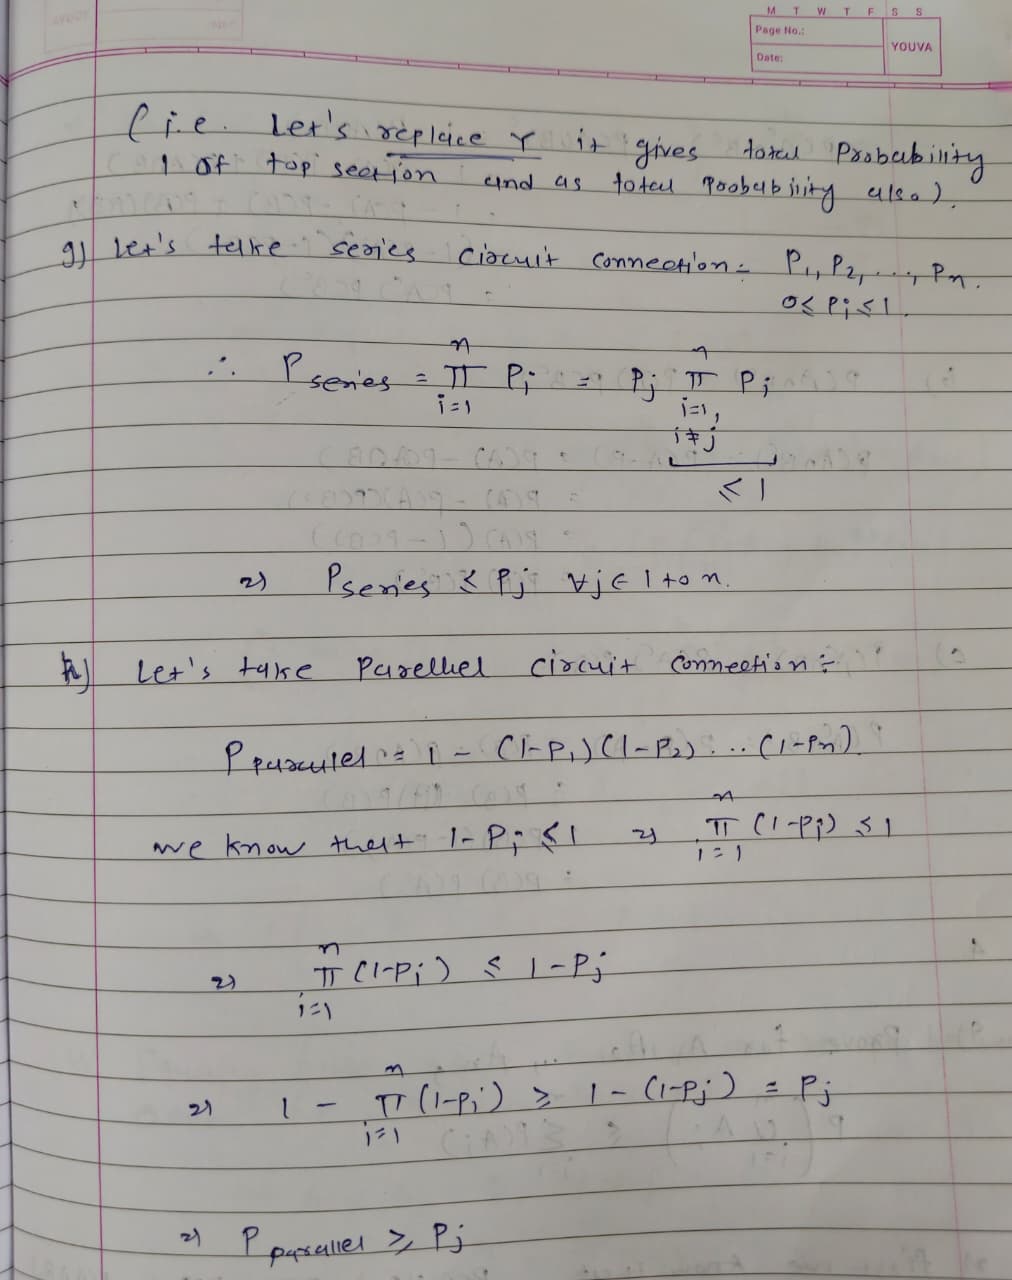 M T W T F S S
Page No.:
YOUVA
Date:
(i.e. Let's replace r it gives total Probability
of top section and as total probability also).
g) Let's take series circuit connection:- P₁, P₂, ..., Pn.
0 ≤ Pi ≤ 1.
∴ P series = n π i=1 Pi = Pj n π i=1, i≠j Pi
≤ 1
⇒ Pseries ≤ Pj ∀ j ∈ 1 to n.
h) Let's take Parellel circuit connection ÷
P parallel = 1 - (1-P₁)(1-P₂) ... (1-Pn).
we know that 1-Pi ≤ 1 ⇒ n π i=1 (1-Pi) ≤ 1
⇒ n π i=1 (1-Pi) ≤ 1-Pj
⇒ 1 - n π i=1 (1-Pi) ≥ 1-(1-Pj) = Pj
⇒ P parallel ≥ Pj